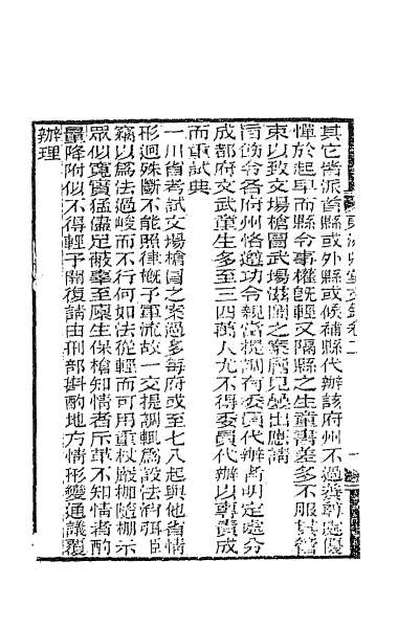 其它皆派首縣或外縣或候補縣代辦該府州不過養尊處優
憚於起早而縣令事權旣輕又隔縣之生童書差多不服其管
束以致文場槍圖武場滋鬧之案層見疊出應請
旨飭令各府州恪遵功令親當提調有委員代辦者明定處分
成都府文武童生多至三四萬人尤不得委員代辦以專責成
而重試典
一川省考試文場槍圖之案過多每府或至七八起與他省情
形迥殊斷不能照律概予軍流故一交提調輒爲設法消弭臣
竊以爲法過峻而不行何如法從輕而可用重杖嚴枷隨棚示
眾似寬實猛儘足蔽辜至廩生保槍知情者斥革不知情者酌
量降附似不得輕予開復請由刑部斟酌地方情形變通議覆
辦理
卷二